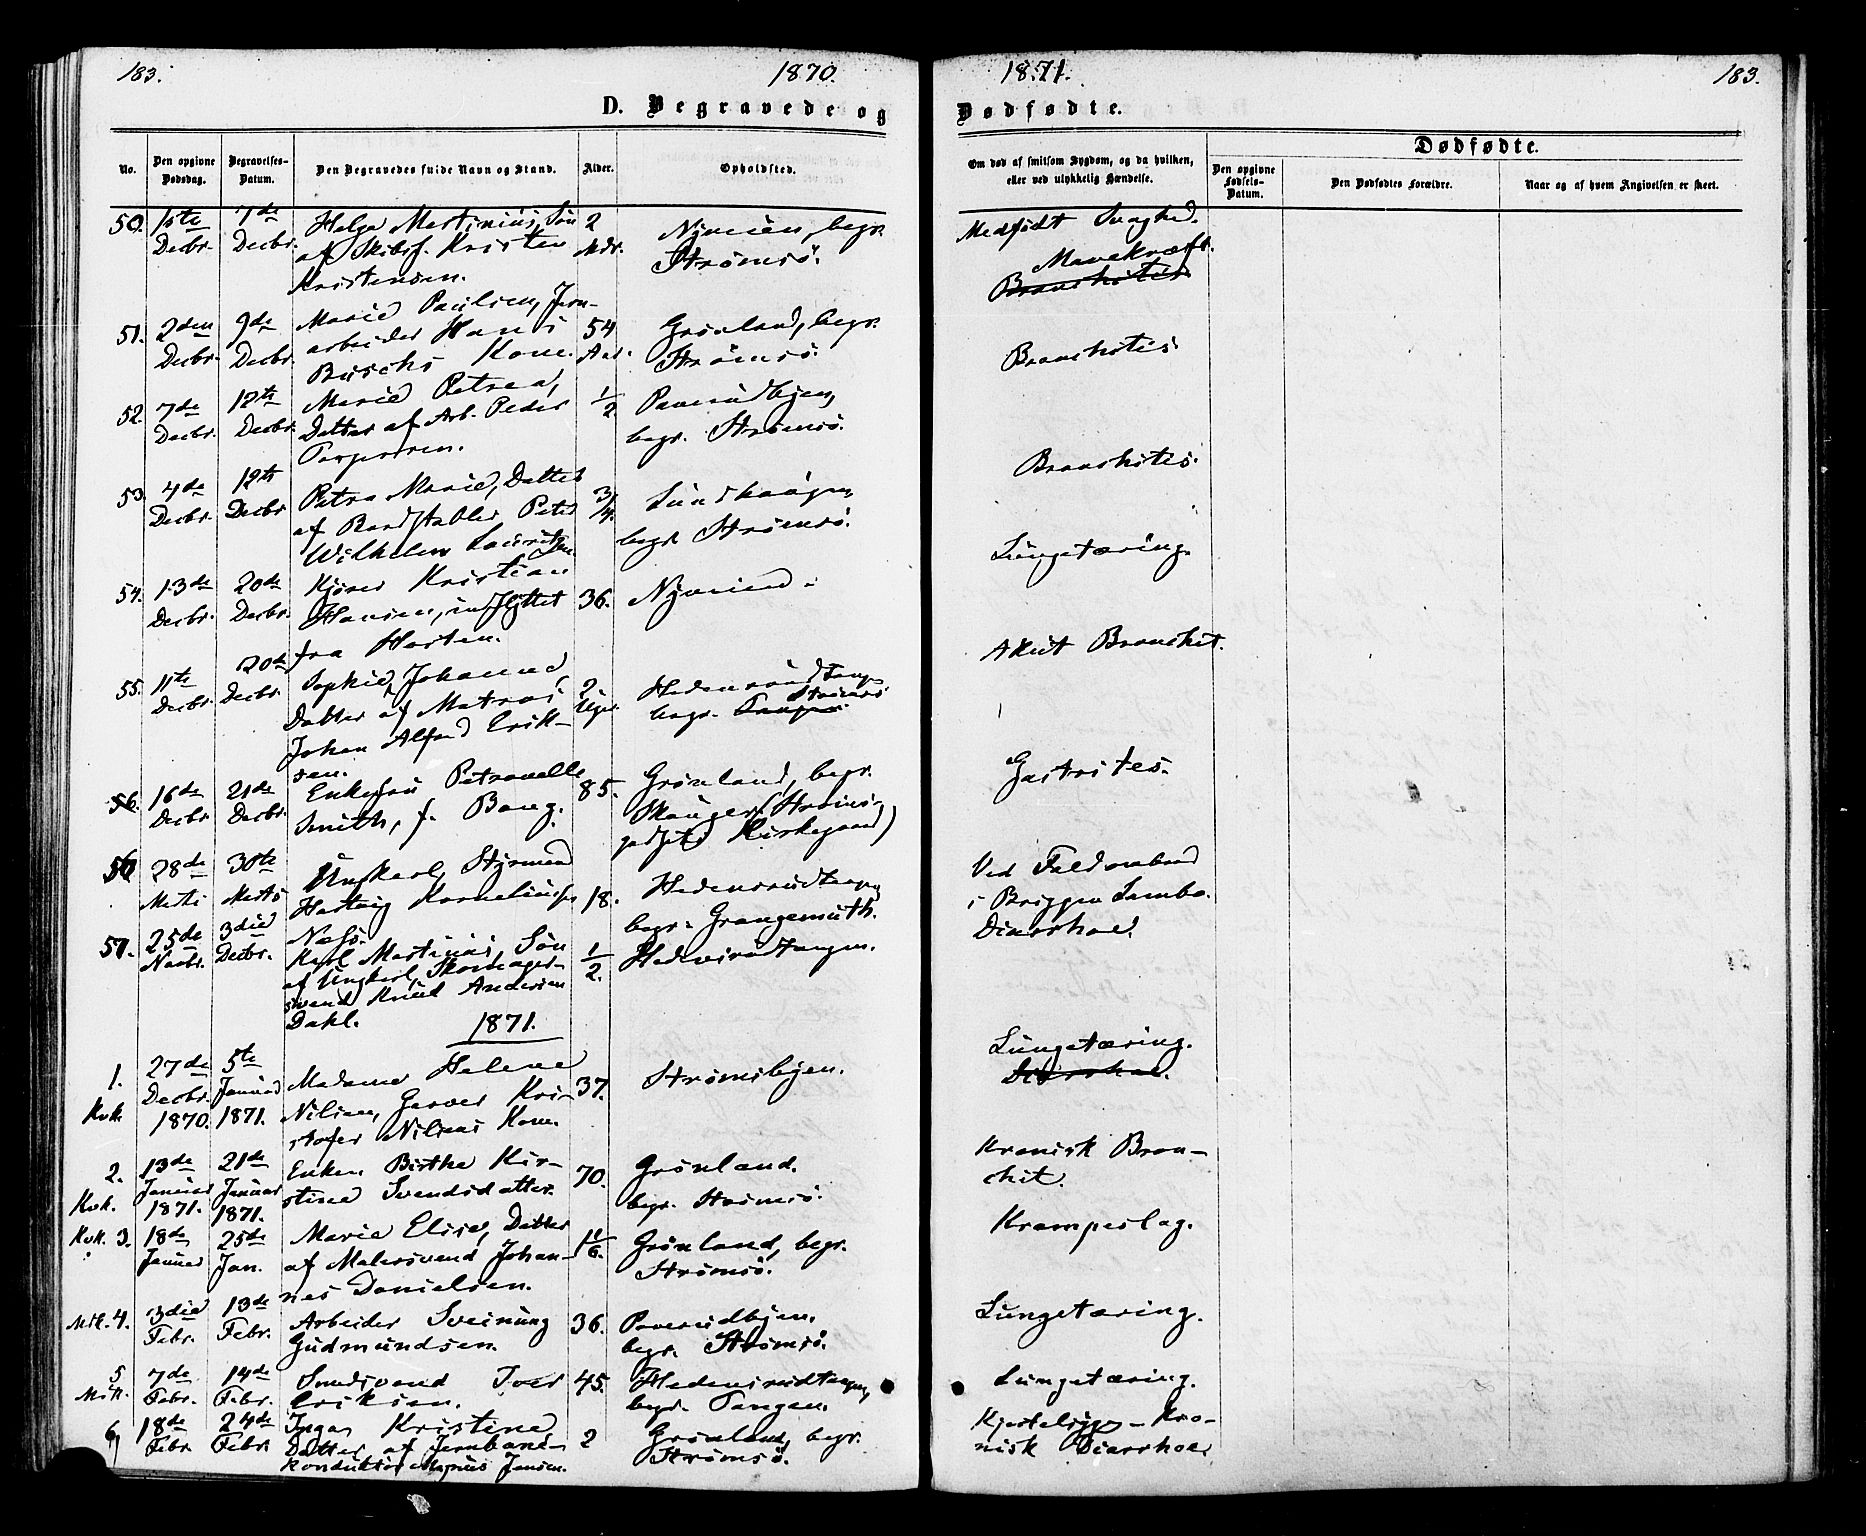 183.
1870.
D. Begravede og
No.
Den opgivne Dødsdag.
Begravelses-Datum.
Den Begravedes fulde Navn og Stand.
Alder.
Opholdsted.
50.
1ste Decbr.
7de Decbr.
Helge Martinius, Søn
af Skibsf. Kristen
Kristensen.
2 Mdr.
begr.
Strømsø.
51.
2den Decbr.
9de Decbr.
Marie Paulsen, Jern-
arbeider Hans
Buschs Kone.
54 Aar.
Grønland, begr.
Strømsø.
52.
7de Decbr.
12te Decbr.
Marie Petrea,
Datter af Arb. Peder
1/2
begr. Strømsø.
53.
4de Decbr.
12te Decbr.
Petra Marie, Datter
af Peter
Wilhelm Lauritsen
3/4.
Sundhaugen
begr. Strømsø.
54.
13de Decbr.
20de Decbr.
Kjører Kristian
Hansen, indflyttet
fra Horten.
36.
55.
11te Decbr.
20de Decbr.
Sophie Johanne,
Datter af Matros
Johan Alfred Erik-
sen.
2 Uger.
Hedensrudtangen
begr. Tangen. Strømsø
56.
16de Decbr.
21de Decbr.
Enkefru Petronelle
Smith, f. Bang.
85.
Grønland, begr.
Skauger (Strømsø-
godsets Kirkegaard)
56
28de Marts
30te Marts
Ungkarl, Styrmand
Hartvig Korneliusen
Næss.
18.
Hedensrudtangen
begr. Grangemuth.
57.
25de Novbr.
3die Decbr.
Karl Martinius, Søn
af Ungkarl, Skomager-
svend Knud Andersen
Dahl.
1/2.
Hedensrudtangen.
1871.
1.
Kvk.
27de Decbr. 1870.
5te Januar 1871.
Madame Helene
Nilsen, Garver Kri-
stofer Nilsens Kone.
37.
Strømsbyen.
2.
Kvk.
13de Januar 1871.
21de Januar 1871.
Enken Birthe Kir-
stine Svendsdatter.
70.
Grønland.
begr. Strømsø.
Kvk. 3.
18de Januar
25de Jan.
Marie Elise, Datter
af Malersvend Johan-
nes Danielsen.
1 1/6.
Grønland, begr.
Strømsø.
Mk. 4.
3die Febr.
13de Febr.
Arbeider Sveinung
Gudmundsen.
36.
begr. Strømsø.
5
Mk.
7de Febr.
14de Febr.
Smedsvend Iver
Eriksen.
45.
Hedensrudtangen,
begr. Tangen.
6
18de Febr.
24de Febr.
Inga Kristine
Datter af Jernbane-
konduktør Magnus Jensen.
2
Grønland, begr.
Strømsø.
1871.
183.
Dødfødte.
Om død af smitsom Sygdom, og da hvilken,
eller ved ulykkelig Hændelse.
Dødfødte.
Den opgivne Fødsels-Datum.
Den Dødfødtes Forældre.
Naar og af hvem Angivelsen er skeet.
Medfødt Svaghed.
Mavekræft.
Bronchites
Bronchites
Bronchites.
Lungetæring.
Akut Bronchit.
Gastrites.
Ved Fald ombord
i Briggen Sambo.
Diarrhoe.
Lungetæring.
Diarrhoe.
Kronisk Bron-
chit.
Krampeslag.
Lungetæring.
Lungetæring.
Kjertelsyge – Kro-
nisk Diarrhoe.